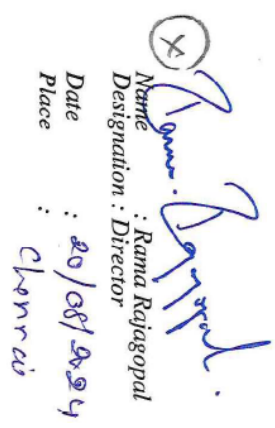 X
Rama Rajagopal.
Name : Rama Rajagopal
Designation : Director
Date : 20/08/2024
Place : Chennai